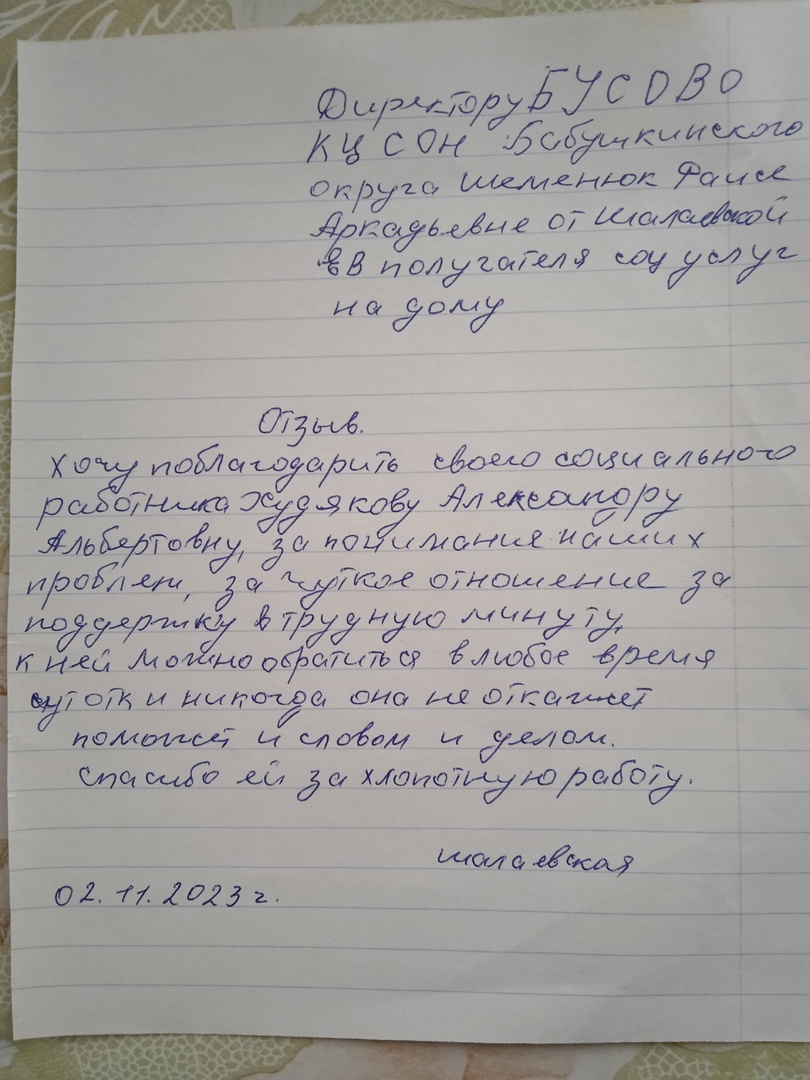 Директору БУСОВО
КЦСОН Бабушкинского
округа Шеменюк Раисе
Аркадьевне от Шалаевской
ВВ получателя соц услуг
на дому
Отзыв.
Хочу поблагодарить своего социального
работника Худякову Александру
Альбертовну, за понимания наших
проблем, за чуткое отношение за
поддержку в трудную минуту.
К ней можно обратиться в любое время
суток и никогда она не откажет
поможет и словом и делом.
Спасибо ей за хлопотную работу.
Шалаевская
02.11.2023 г.